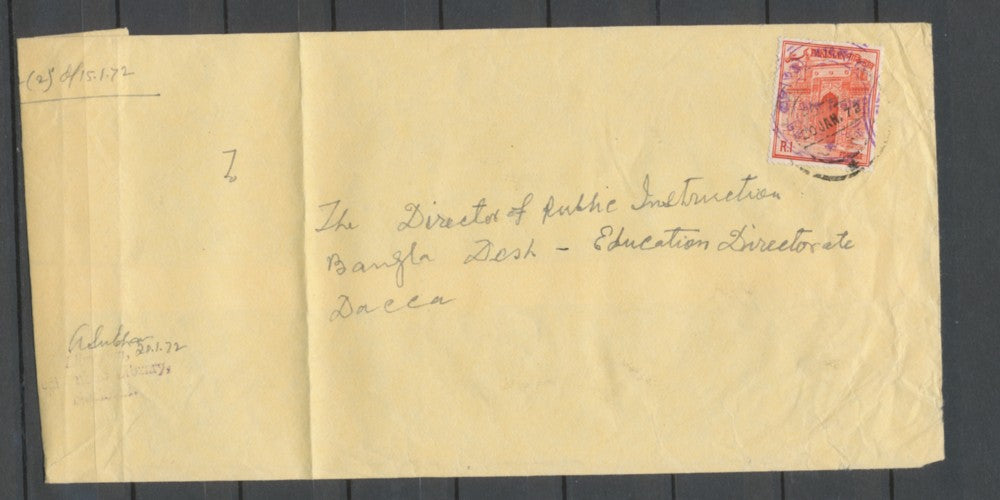 (2) d/15.1.72
To
The Director of Public Instruction
Bangla Desh – Education Directorate
Dacca
20.1.72
Library,
R.1
20 JAN. 72